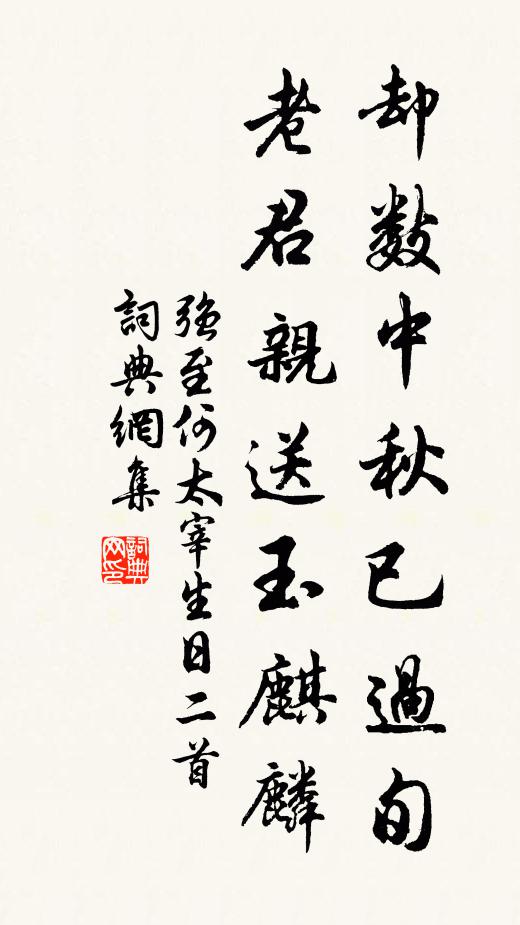 却数中秋已過旬
老君親送玉麒麟
強至何太宰生日二首
詞典網集
詞典網印